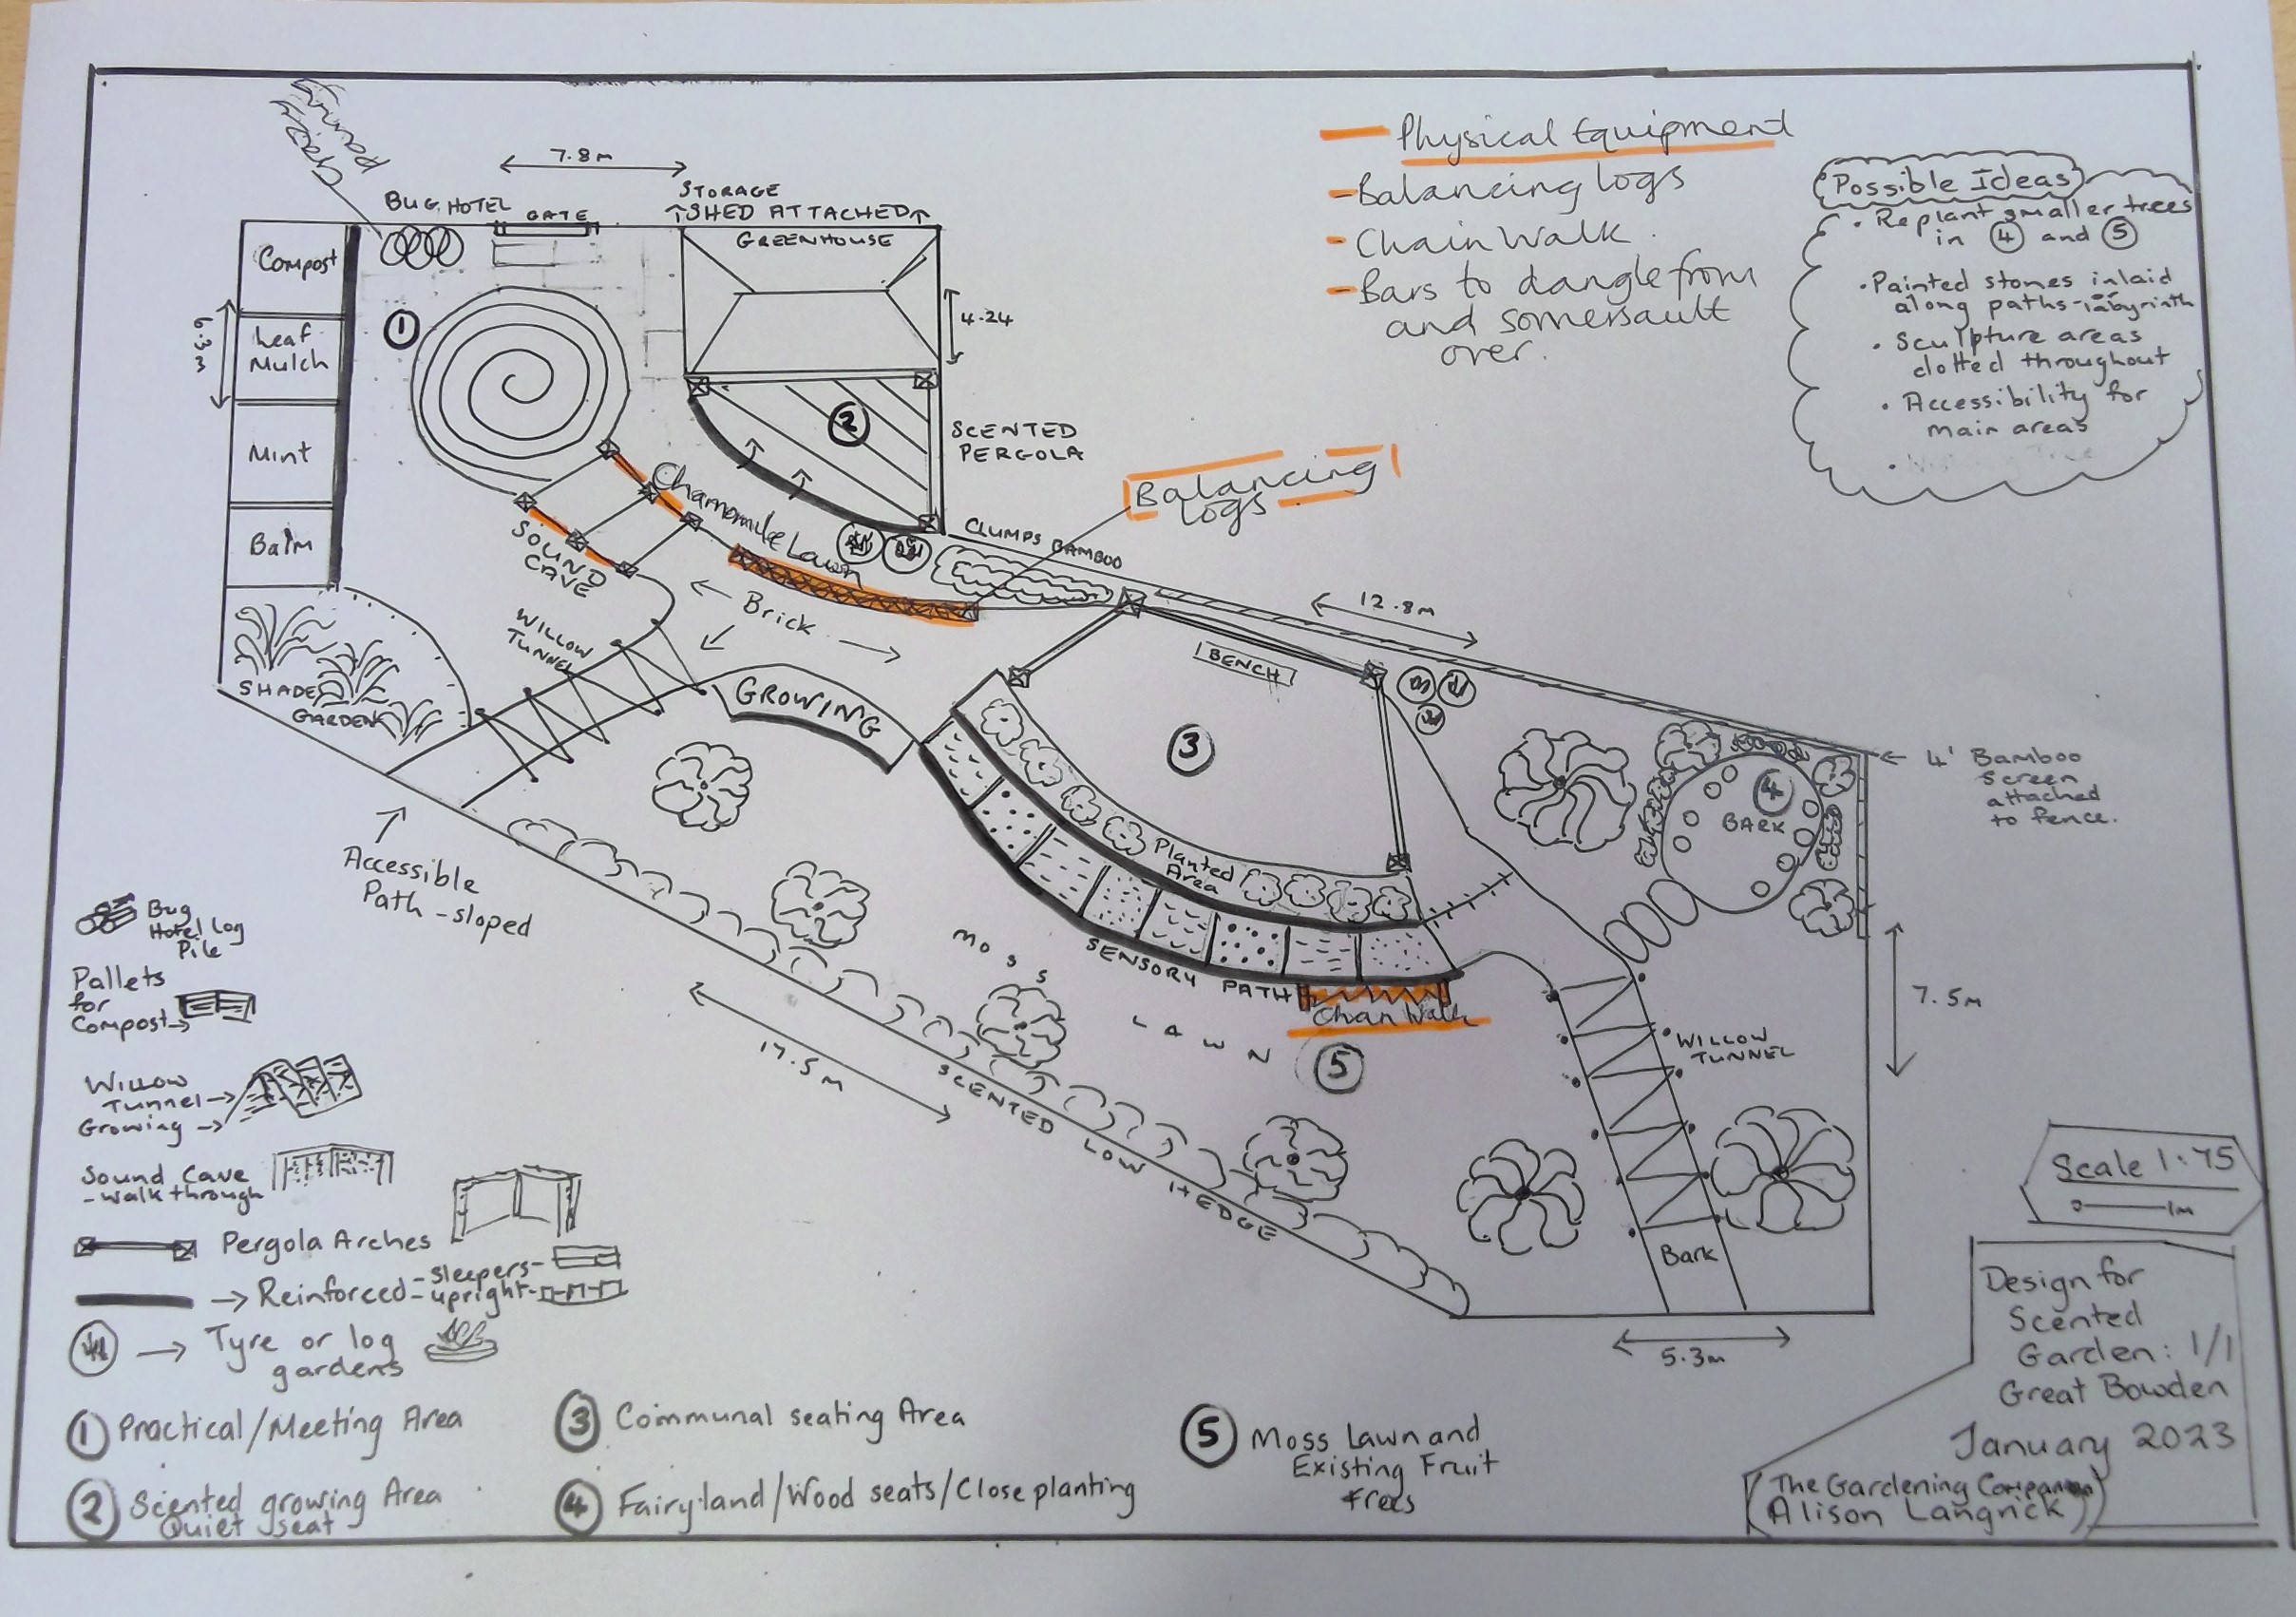 Crazy
paving
7.8m
BUG HOTEL
GATE
STORAGE
↑SHED ATTACHED↑
GREENHOUSE
Compost
Leaf
Mulch
Mint
Balm
6.33
1
4.24
2
SCENTED
PERGOLA
Chamomile Lawn
SOUND
CAVE
← Brick →
WILLOW
TUNNEL
SHADE
GARDEN
GROWING
Balancing
Logs
CLUMPS BAMBOO
12.8m
BENCH
3
Planted
Area
SENSORY PATH
Chain Walk
4
BARK
← 4' Bamboo
Screen
attached
to fence.
7.5m
WILLOW
TUNNEL
Bark
5.3m
5
MOSS
LAWN
17.5m
SCENTED LOW HEDGE
Accessible
Path - sloped
Physical Equipment
- Balancing logs
- Chain Walk.
- Bars to dangle from
and somersault
over.
Possible Ideas
• Replant smaller trees
in 4 and 5
• Painted stones inlaid
along paths - or labyrinth
• Sculpture areas
dotted throughout
• Accessibility for
main areas
Bug
Hotel Log
Pile
Pallets
for
Compost→
Willow
Tunnel→
Growing →
Sound Cave
- walk through
Pergola Arches
→ Reinforced - sleepers-
- upright-
→ Tyre or log
gardens
1 Practical/Meeting Area
2 Scented growing Area
Quiet seat
3 Communal seating Area
4 Fairyland/Wood seats/Close planting
5 Moss Lawn and
Existing Fruit
Trees
Scale 1:75
0 1m
Design for
Scented
Garden: 1/1
Great Bowden
January 2023
The Gardening Companion
Alison Langrick